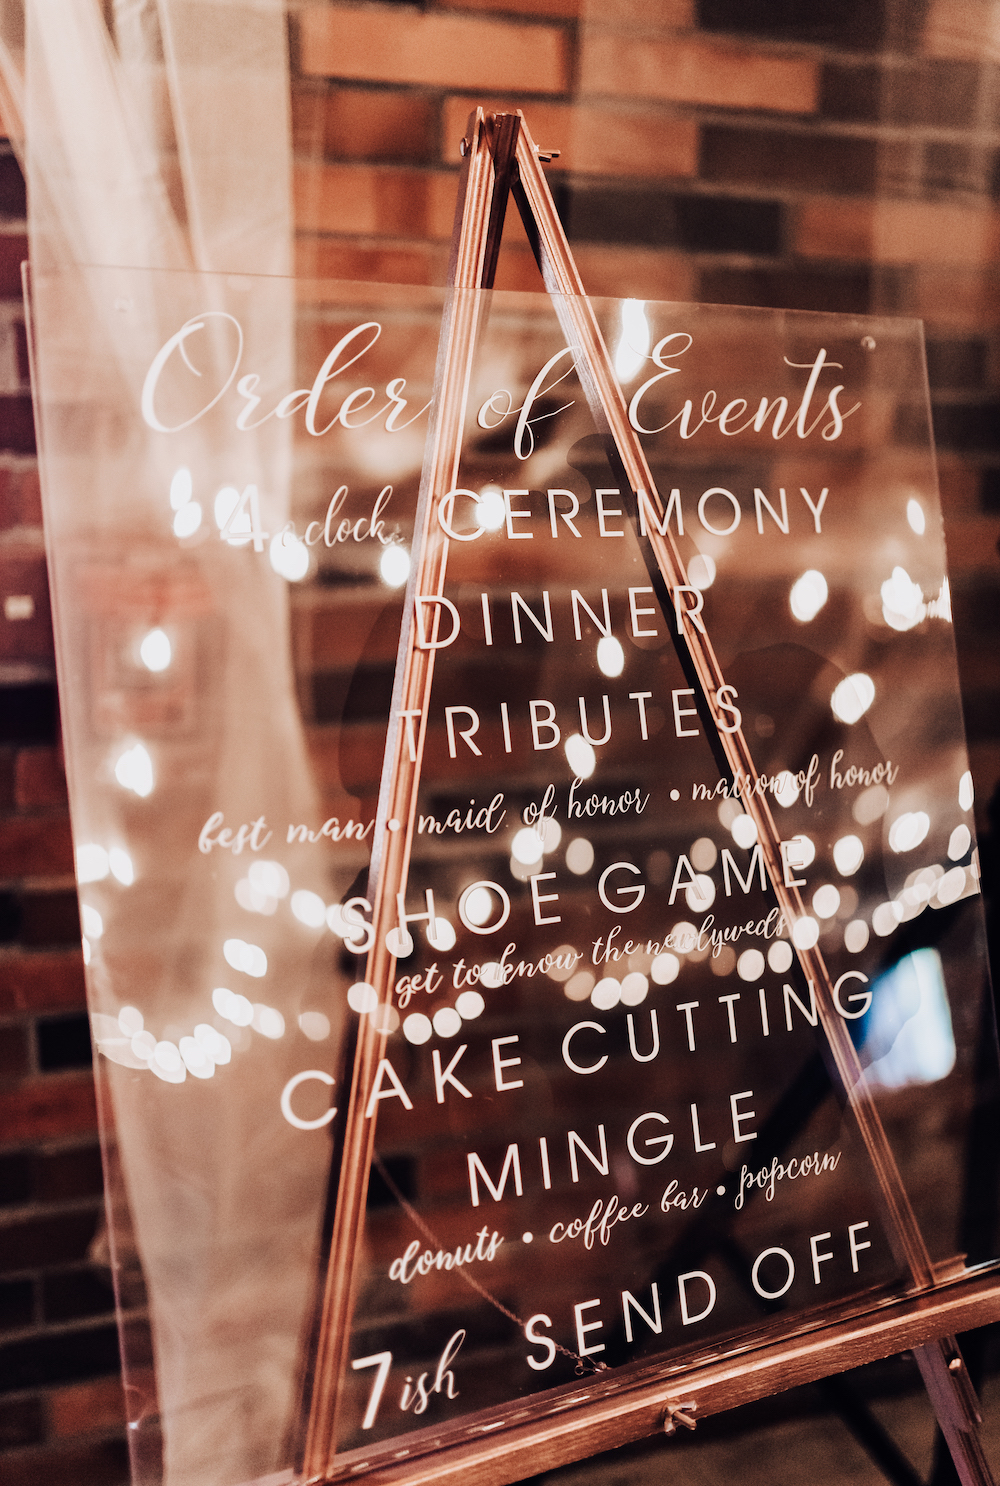 Order of Events
4 o'clock CEREMONY
DINNER
TRIBUTES
best man • maid of honor • matron of honor
SHOE GAME
get to know the newlyweds
CAKE CUTTING
MINGLE
donuts • coffee bar • popcorn
7ish SEND OFF